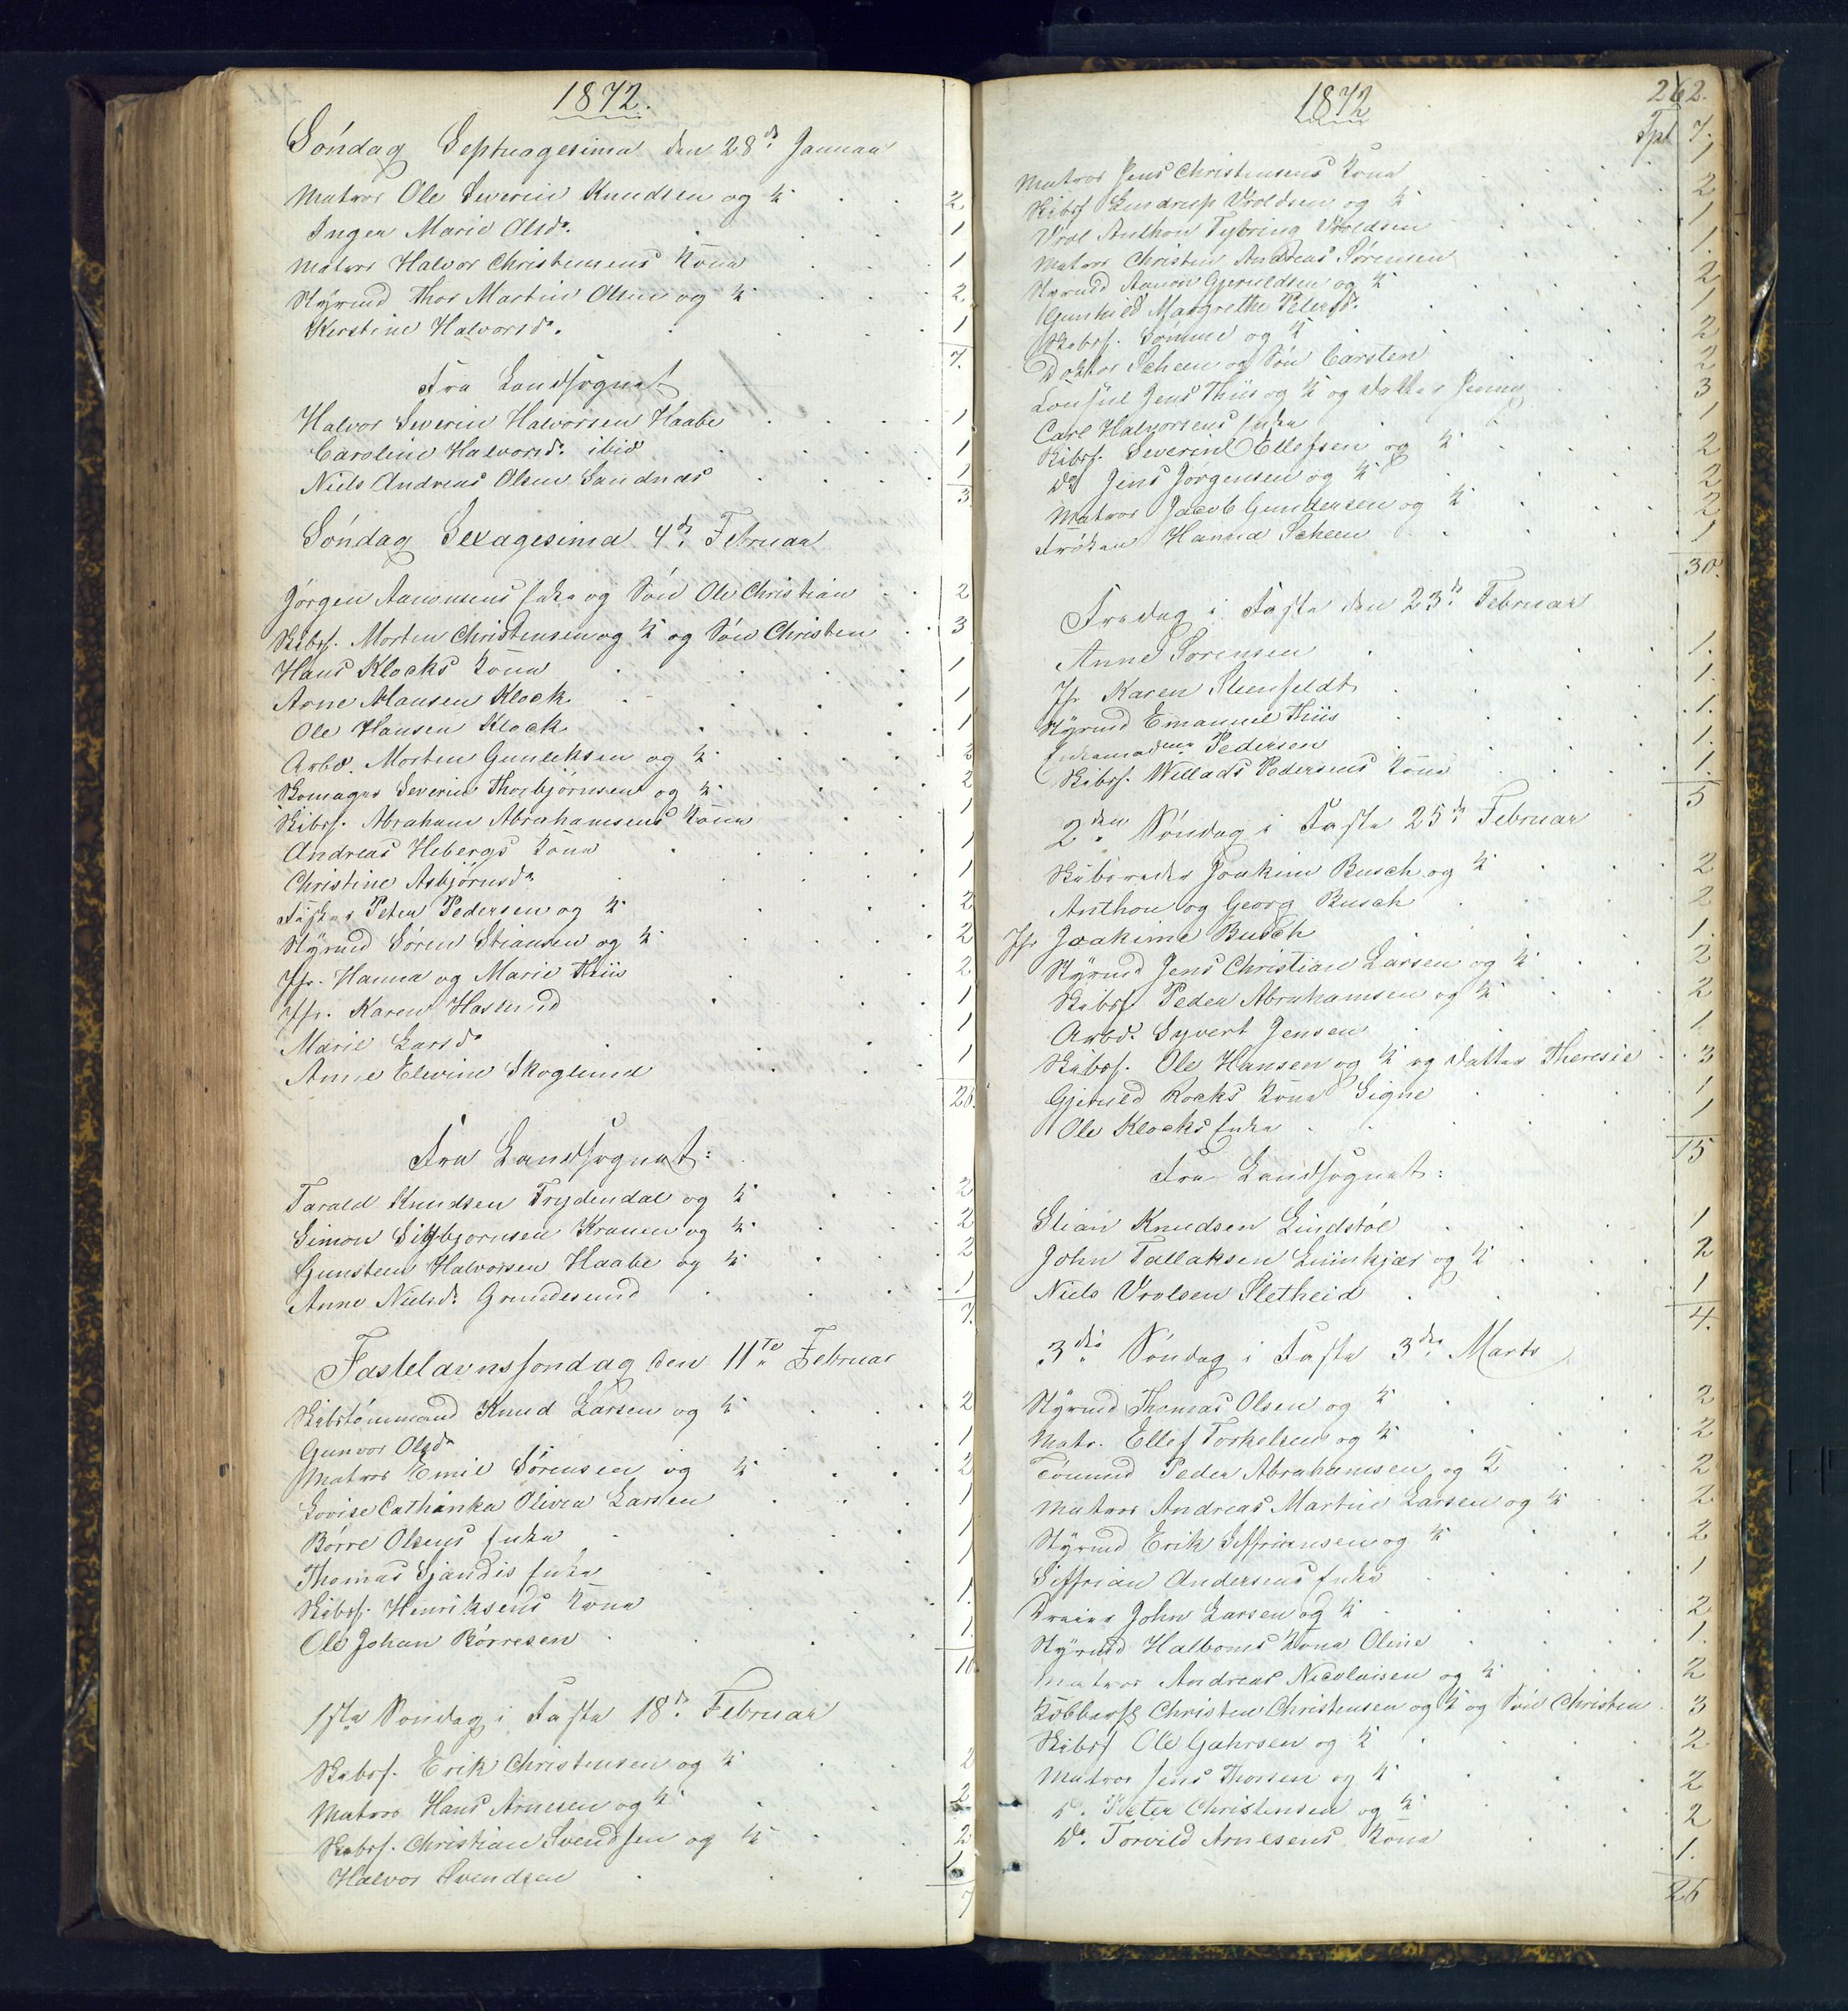 1872.
Søndag Septuagesima den 28de Januar
Matros Ole Severin Knudsen og K. 2
Inger Marie Olsdr. 1
Matros Halvor Christensens Kone 1
Styrmd Thor Martin Olsen og K. 2
Kirstine Halvorsdr. 1
7.
Fra Landsognet
Halvor Severin Halvorsen Haabe 1
Caroline Halvorsdr. ibid 1
Niels Andreas Olsen Sandnæs 1
3
Søndag Sexagesima 4de Februar
Jørgen Aanonsens Enke og Søn Ole Christian 2
Skibsf. Morten Christensen og K. og Søn Christen 3
Hans Klocks Kone 1
Arne Hansen Klock 1
Ole Hansen Klock 1
Arbd. Morten Gunleksen og K. 2
Skomager Severin Thorbjørnsen og K. 2
Skibsf. Abraham Abrahamsens Kone 1
Andreas Hebergs Kone 1
Christine Asbjørnsdr. 1
Fisker Peter Pedersen og K. 2
Styrmd Søren Stiansen og K. 2
Jfr. Hanna og Marie Thiis 2
Jfr. Karen Haslund 1
Marie Larsdr 1
Anne Elevine Skoglund 1
26.
Fra Landsognet:
Tarald Knudsen Frydendal og K. 2
Simon Sigbjørnsen Kranen og K. 2
Gunsteen Halvorsen Haabe og K. 2
Anne Nielsdr. Grundesund 1
7.
Fastelavnssøndag den 11te Februar
Skibstømmand Knud Larsen og K. 2
Gunvor Olsdr 1
Matros Emil Sørensen og K. 2
Lovise Cathinka Olivia Larsen 1
Børre Olsens Enke 1
Thomas Sjandis Enke 1
Skibsf. Henriksens Kone 1.
Ole Johan Børresen 1.
10.
1ste Søndag i Faste 18de Februar
Skibsf. Erik Christensen og K. 2
Matros Hans Arnesen og K. 2
Skibsf. Christian Svendsen og K. 2
Halvor Svendsen 1
7
1872
262.
Tpt 7.
Matros Jens Christensens Kone 1
Skibsf Lindrup Vroldsen og K. 2
Vrol Anthon Tybring Vroldsen 1
Matros Christen Andreas Sørensen 1.
Styrmd Aanon Gjeruldsen og K. 2
Gunhild Margrethe Petersd. 1
Skibsf. Somme og K. 2
Doktor Scheen og Søn Carsten 2
Consul Jens Thiis og K. og Datter Jenny 3
Carl Halvorsens Enke 1
Skibsf. Severin Ellefsen og K. 2
Do Jens Jørgensen og K. 2
Matros Jacob Gundersen og K. 2
Frøken Hanna Scheen 1
30.
Fredag i Faste den 23de Februar
Anne Sørensen 1.
Jfr Karen Steenfeldt 1.
Styrmd Emanuel Thiis 1.
Enkemadme Pedersen 1.
Skibsf. Willads Pedersens Kone 1.
5
2den Søndag i Faste 25de Februar
Skibsreder Joakim Busch og K. 2
Anthon og Georg Busch 2
Jfr Joakime Busch 1.
Styrmd Jens Christian Larsen og K. 2
Skibsf. Peder Abrahamsen og K. 2
Arbd. Syvert Jensen 1.
Skibsf. Ole Hansen og K. og Datter Theresie 3
Gjeruld Rocks Kone Signe 1
Ole Klocks Enke 1
15
Fra Landsognet:
Stian Knudsen Lindstøl 1
John Tallaksen Linkjær og K. 2
Niels Vrolsen Sletheid 1
4.
3die Søndag i Faste 3die Marts
Styrmd Thomas Olsen og K. 2
Matr. Ellef Torkelsen og K. 2
Tømmd Peder Abrahamsen og K. 2
Matros Andreas Martin Larsen og K. 2
Styrmd Erik Siffriansen og K. 2
Siffrian Andersens Enke 1
Dreier John Larsen og K. 2
Styrmd Halboms Kone Oline 1.
Matros Andreas Nicolaisen og K. 2
Kobbersl Christen Christensen og K og Søn Christen 3
Skibsf Ole Gahrsen og K. 2
Matros Jens Thorsen og K. 2
Do. Peter Christensen og K. 2
Do. Torvild Arnesens Kone 1.
26